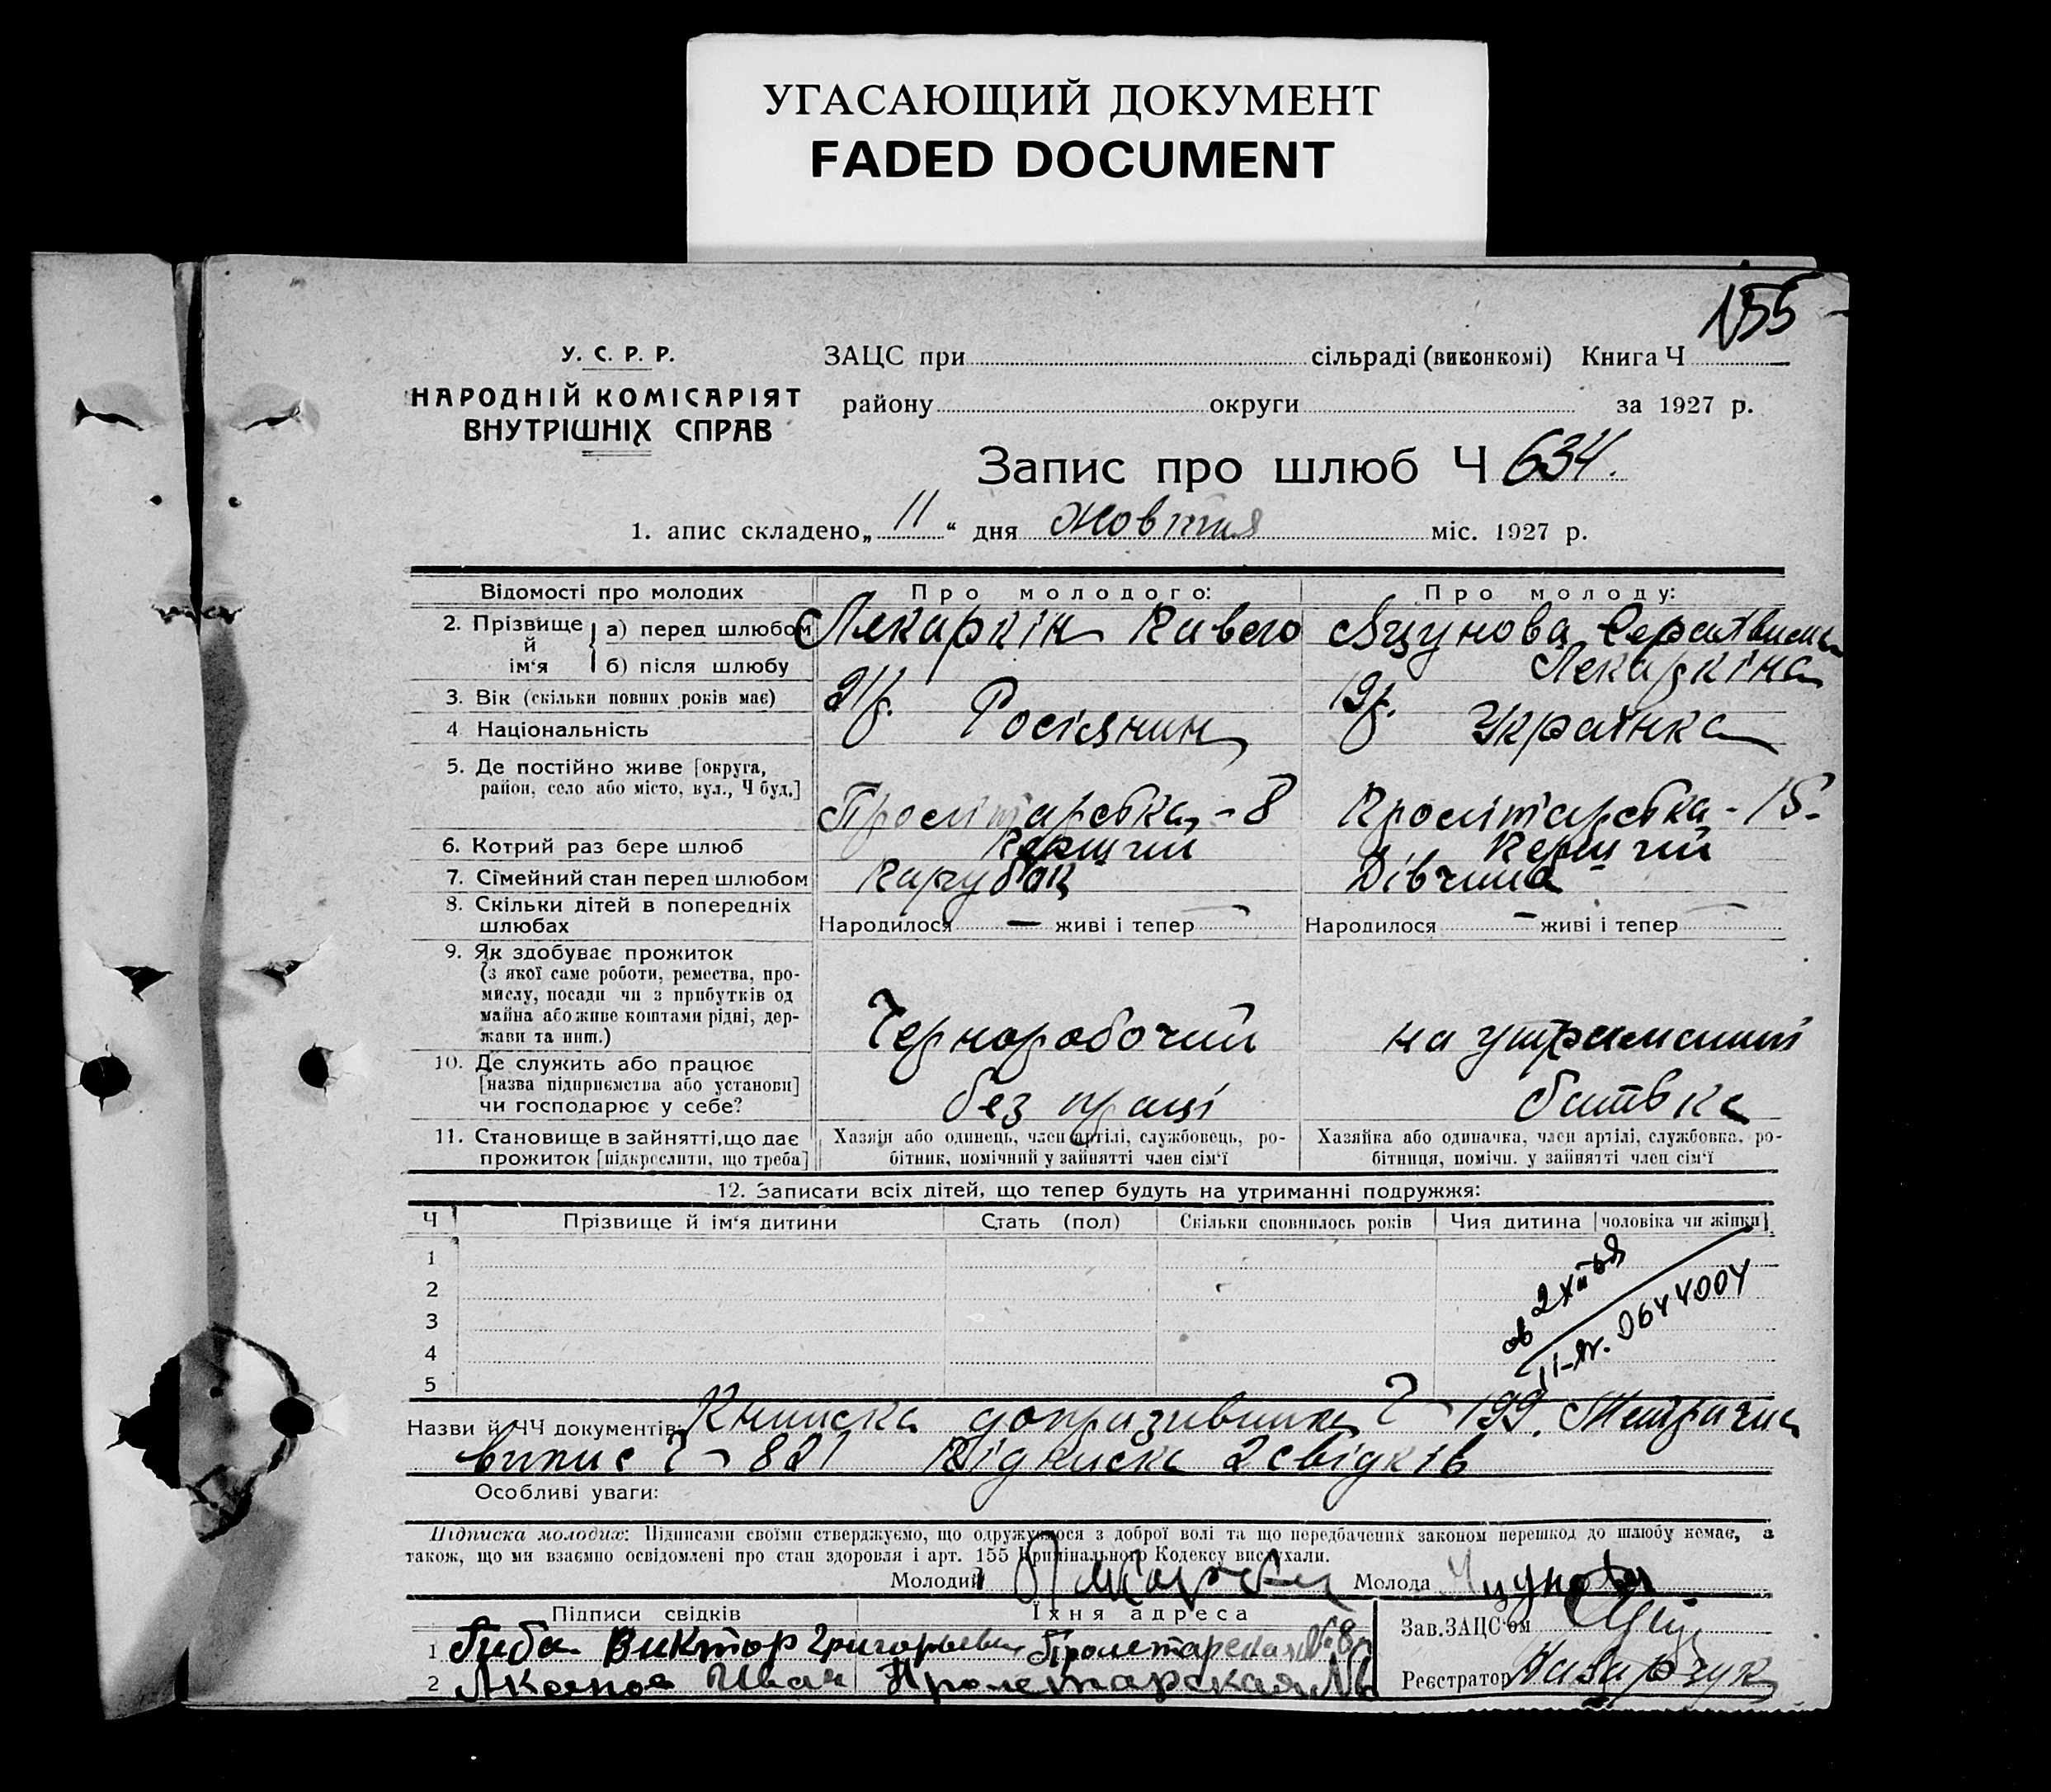 УГАСАЮЩИЙ ДОКУМЕНТ
FADED DOCUMENT
155
У. С. Р. Р.
НАРОДНІЙ КОМІСАРІЯТ
ВНУТРІШНІХ СПРАВ
ЗАЦС при сільраді (виконкомі) Книга Ч
району округи за 1927 р.
Запис про шлюб Ч 634.
1. апис складено „ 11 “ дня Жовтня міс. 1927 р.
Відомості про молодих
Про молодого:
Про молоду:
2. Прізвище й ім‘я
а) перед шлюбом
Лекаркін Павло
б) після шлюбу
Лекаркіна
3. Вік (скільки повних років має)
21р.
19р.
4 Національність
Росіянин
Українка
5. Де постійно живе [округа,
район, село або місто, вул., Ч буд.]
Пролітарська - 8
Пролітарська - 15.
6. Котрий раз бере шлюб
Перший
Перший
7. Сімейний стан перед шлюбом
Парубок
Дівчина
8. Скільки дітей в попередніх
шлюбах
Народилося — живі і тепер —
Народилося — живі і тепер —
9. Як здобуває прожиток
(з якої саме роботи, ремества, про-
мислу, посади чи з прибутків од
майна або живе коштами рідні, дер-
жави та инш.)
Чорноробочий
на утриманні
10. Де служить або працює
[назва підприємства або установи]
чи господарює у себе?
без праці
батька
11. Становище в зайнятті, що дає
прожиток [підкреслити, що треба]
Хазяїн або одинець, член артілі, службовець, ро-
бітник, помічний у зайнятті член сім‘ї
Хазяйка або одиначка, член артілі, службовка, ро-
бітниця, помічн. у зайнятті член сім‘ї
12. Записати всіх дітей, що тепер будуть на утриманні подружжя:
Ч
Прізвище й ім‘я дитини
Стать (пол)
Скільки сповнилось років
Чия дитина [чоловіка чи жінки]
1
2
3
4
5
0644004
Назви й ЧЧ документів: Книжка допризивника Ч 199. Метрична
випис Ч 821 Підписка 2 свідків
Особливі уваги:
Підписка молодих: Підписами своїми стверджуємо, що одружуємося з доброї волі та що передбачених законом перешкод до шлюбу немає, а
також, що ми взаємно освідомлені про стан здоровля і арт. 155 Кримінального Кодексу вислухали.
Молодий
Молода
Підписи свідків
Їхня адреса
1 Виктор Григорьевич Пролетарская № 8
2 Иван Пролетарская №
Зав. ЗАЦС‘ом
Реєстратор Назарчук